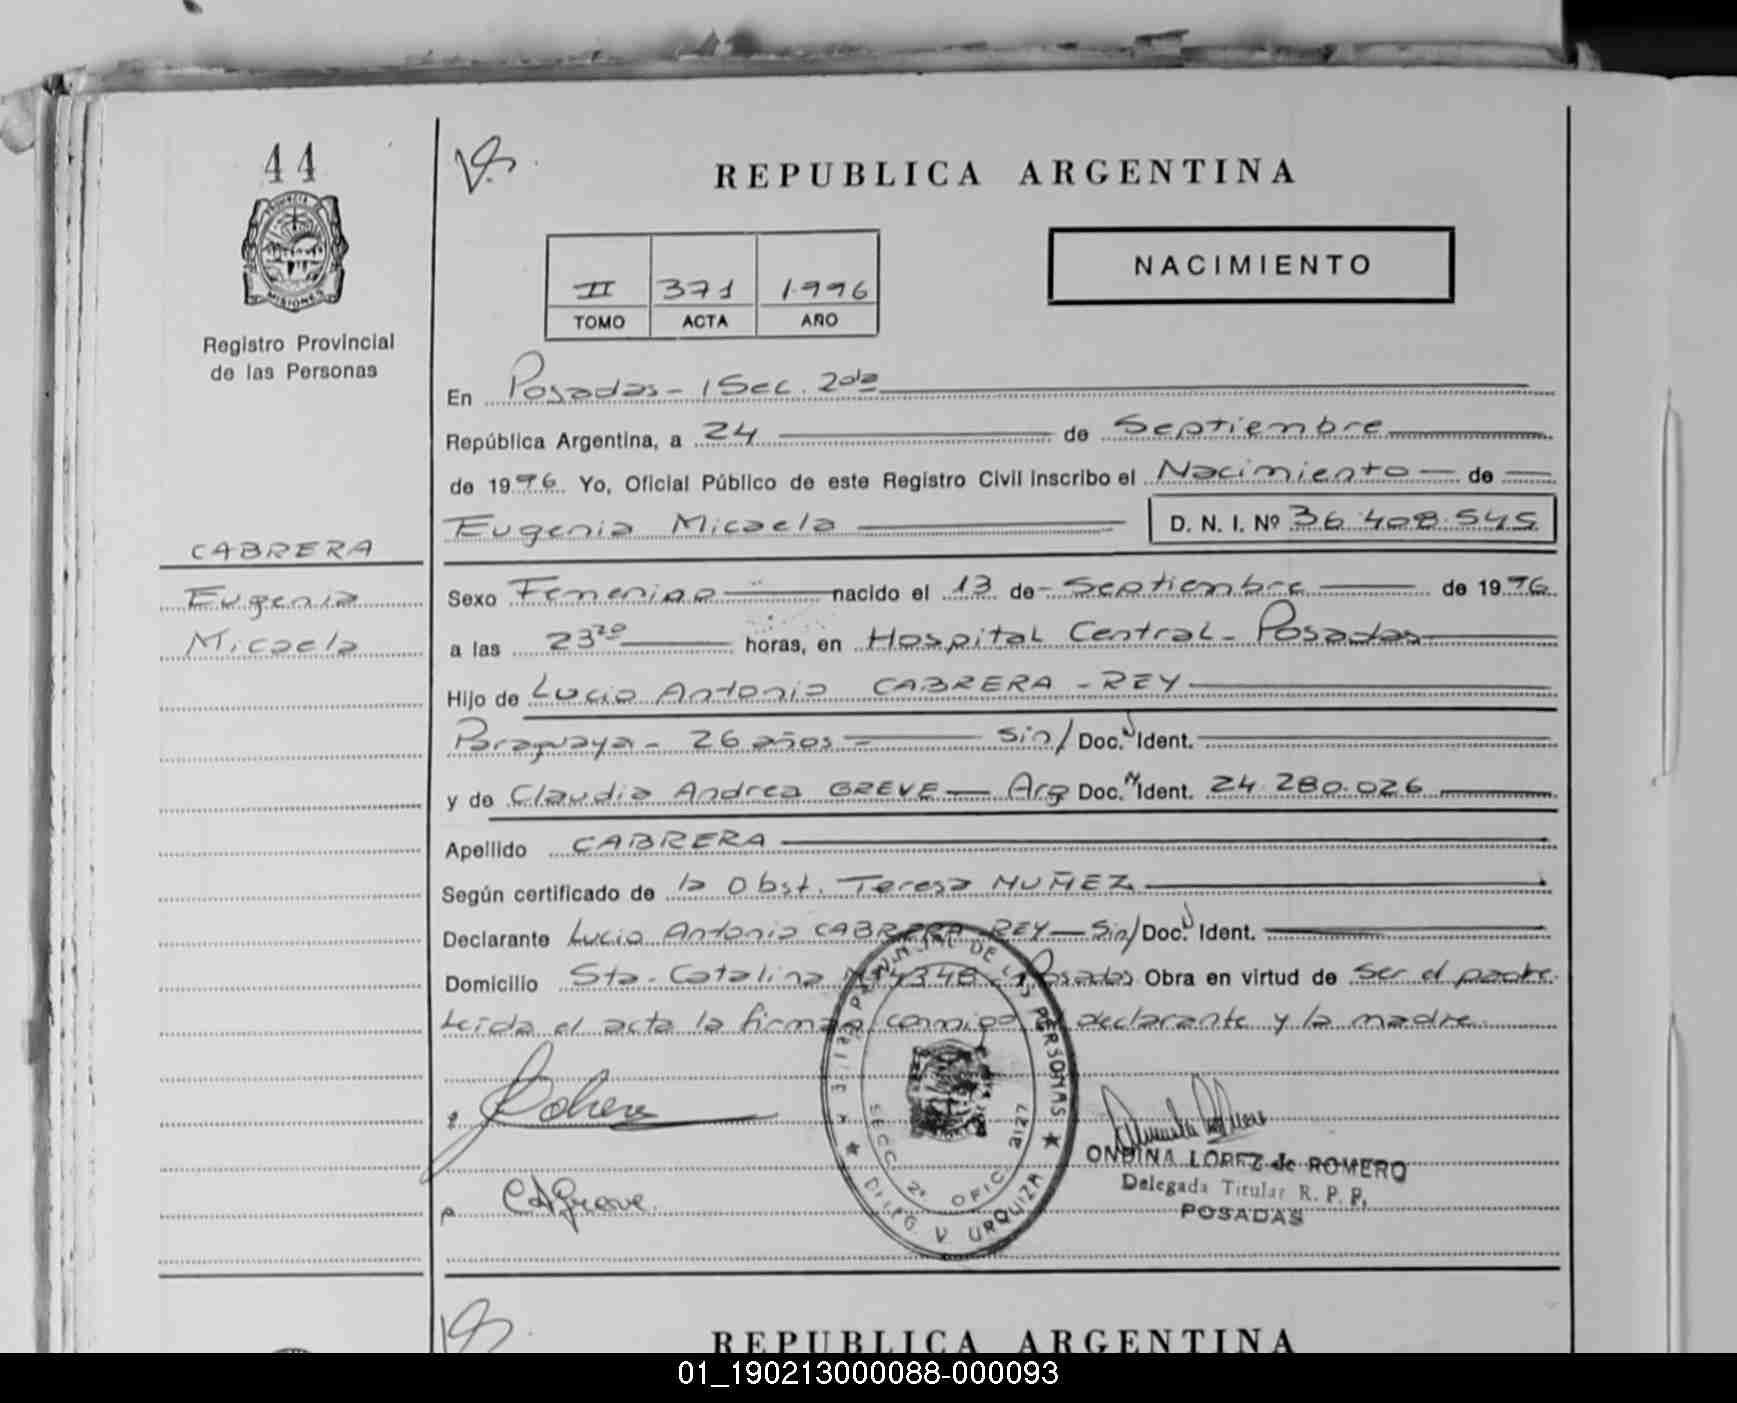 44
REPUBLICA ARGENTINA
PROVINCIA
MISIONES
Registro Provincial
de las Personas
II 371 1996
TOMO ACTA AÑO
NACIMIENTO
En Posadas - Sec. 2da
República Argentina, a 24 de Septiembre
de 1996 Yo, Oficial Público de este Registro Civil inscribo el Nacimiento de
Eugenia Micaela D. N. I. Nº 36.408.545
CABRERA
Eugenia
Micaela
Sexo Femenino nacido el 13 de Septiembre de 1996
a las 23 20 horas, en Hospital Central - Posadas
Hijo de Lucio Antonio CABRERA - REY
Paraguaya - 26 años - sin/ Doc. Ident.
y de Claudia Andrea GREVE - Arg Doc. Ident. 24.280.026
Apellido CABRERA
Según certificado de la Obst. Teresa MUÑEZ
Declarante Lucio Antonio CABRERA REY - Sin/ Doc. Ident.
Domicilio Sta. Catalina Nº 4348 - Posadas Obra en virtud de ser el padre.
Leída el acta la firman conmigo el declarante y la madre.
CAGreve
DE LAS PERSONAS
SECC. 2ª OFIC. 2127
DELEG. V. URQUIZA
ONDINA LOPEZ de ROMERO
Delegada Titular R. P. P.
POSADAS
REPUBLICA ARGENTINA
01_190213000088-000093